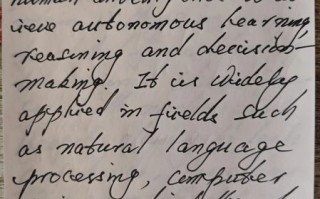 ieve autonomous learning,
reasoning and decision-
making. It is widely
applied in fields such
as natural language
processing, computer